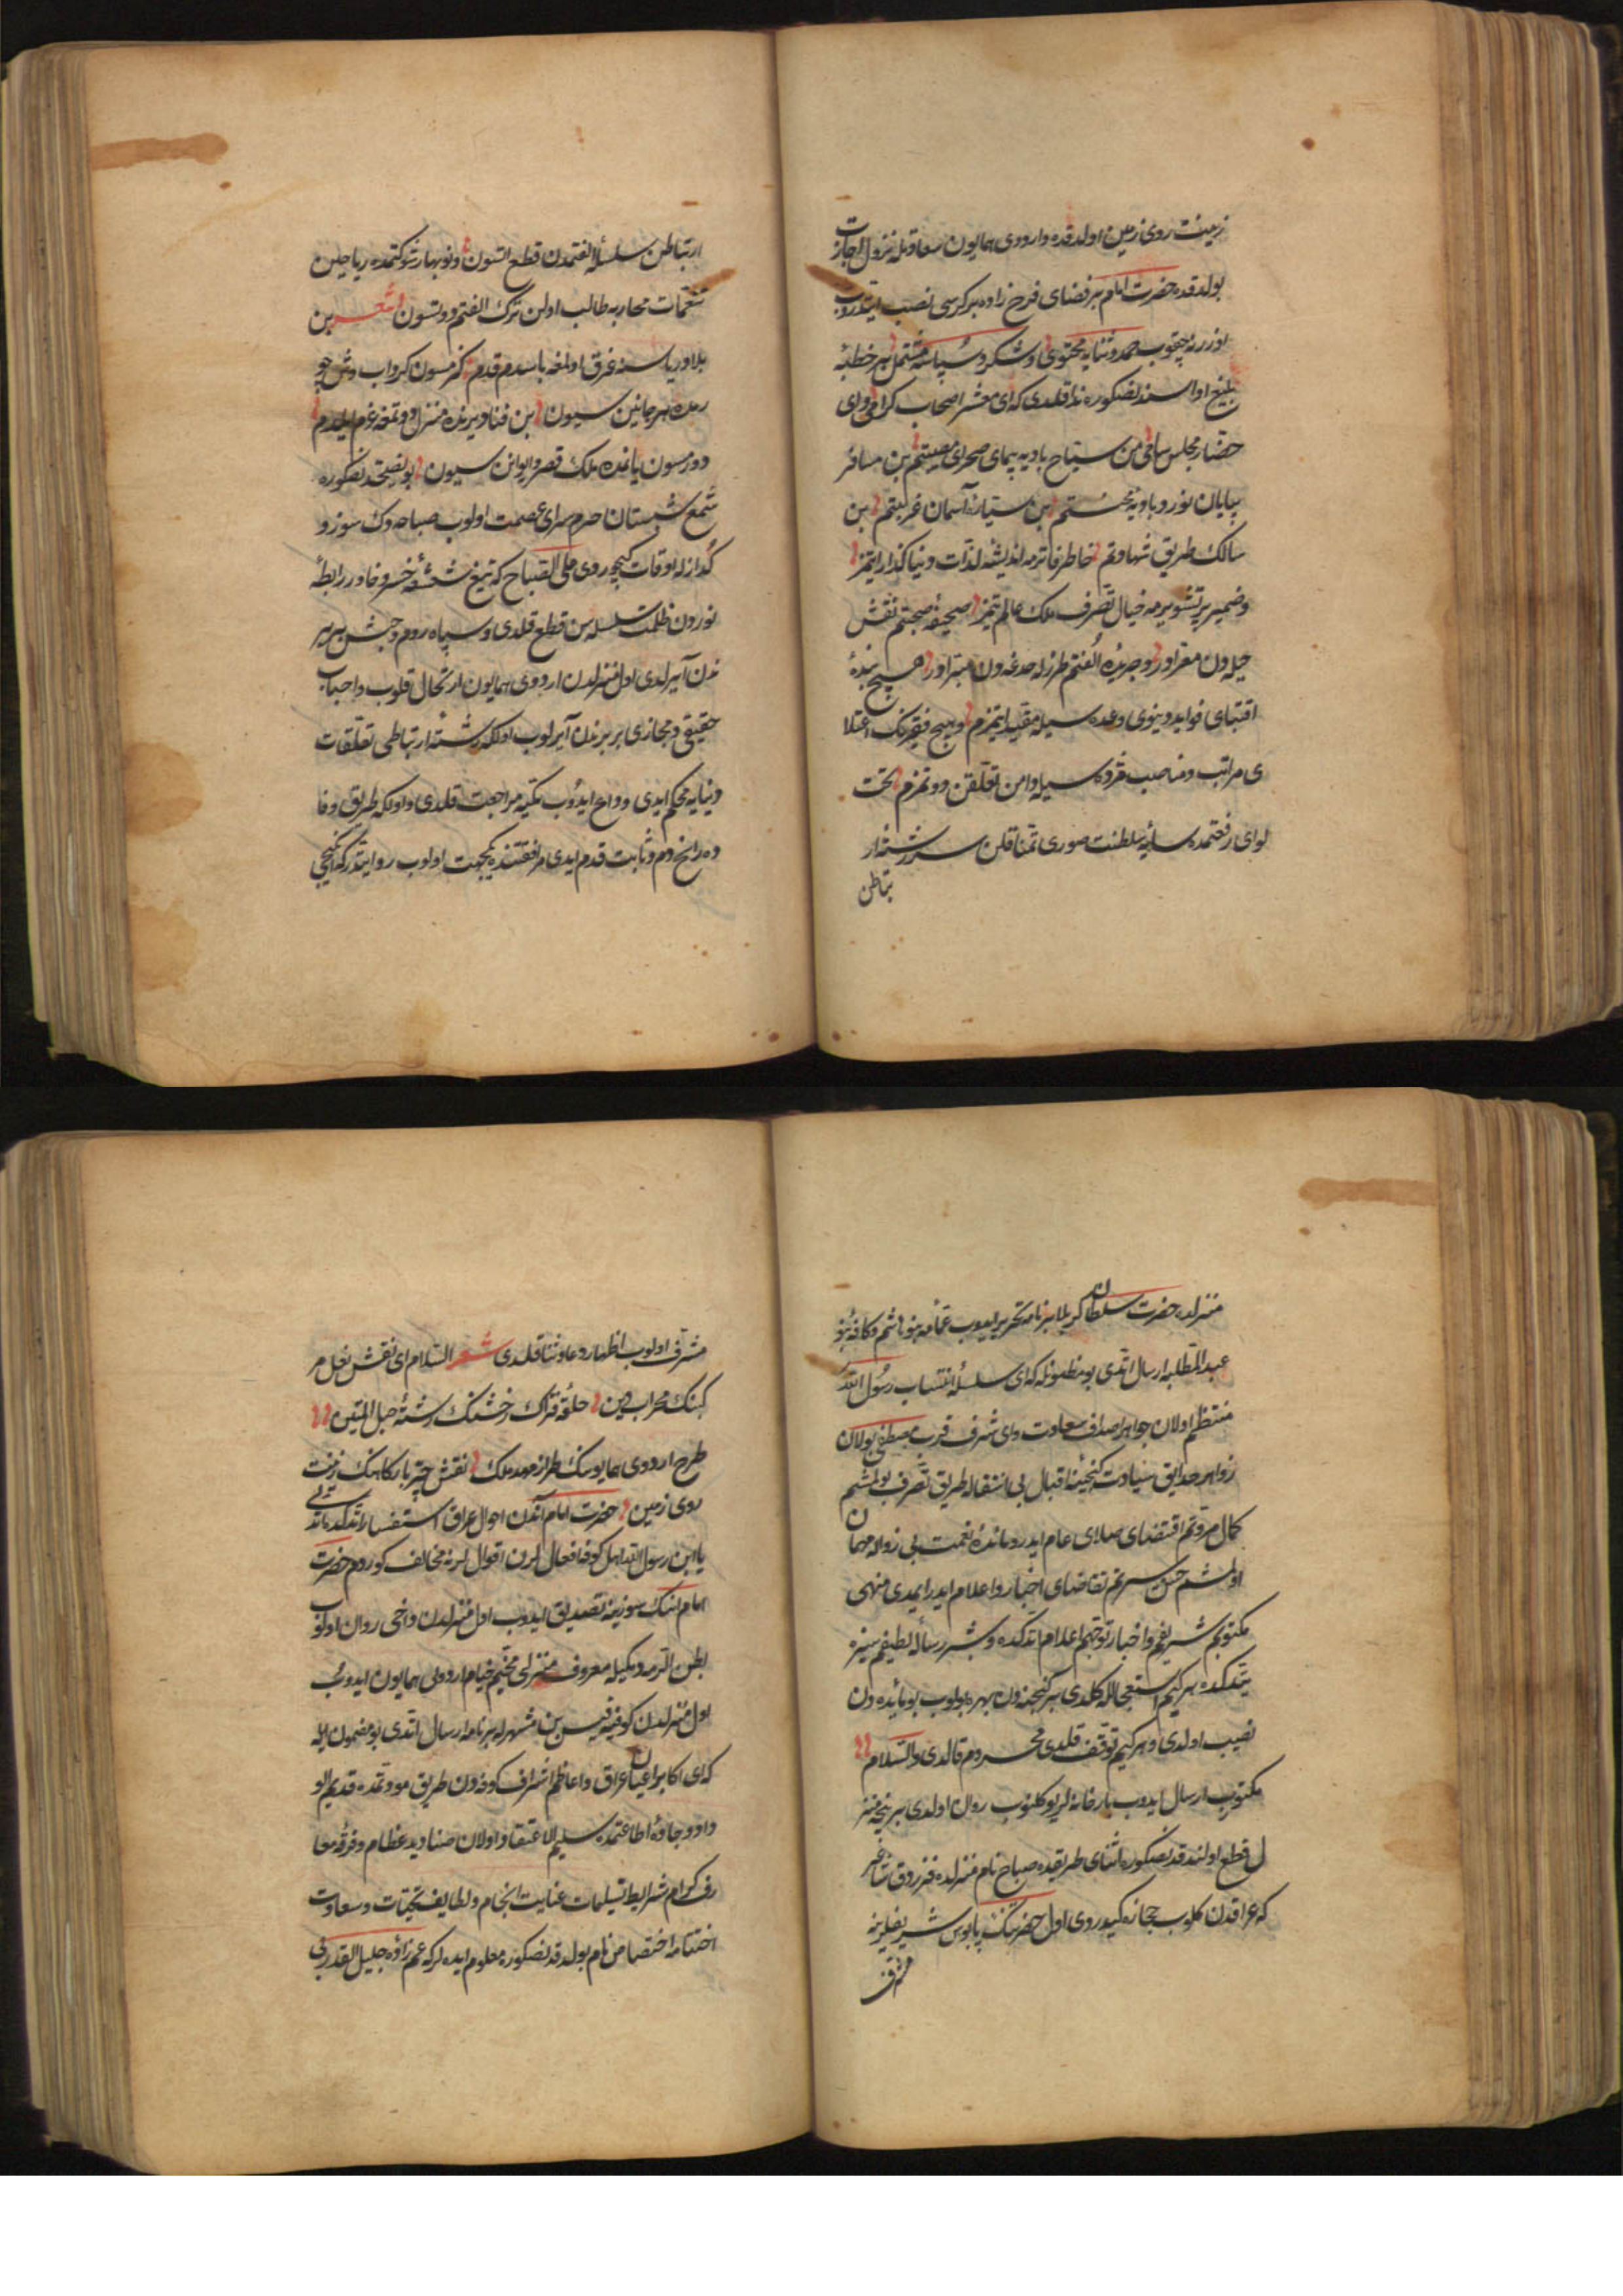 زینت روی زمین اولدقده واردوی همایون سعادتله نزول اجازت
بولدقده حضرت امام بر فضای فرخ زاده بر کرسی نصب ایتدروب
اوزرنه چقوب حمد وثنایه محتوی وشکر وسپاسه مشتمل بر خطبهٔ
بلیغ ادا سندنصکوره ندا قلدی که ای معشر اصحاب کرام وای
حضار مجلس سامی من سیاح بادیه پیمای صحرای معصیتم بن مسافر
بیابان نورد بادیهٔ محنتم بن سیارهٔ آسمان غربتم بن
سالک طریق شهادتم خاطر فاترمه اندیشهٔ لذات دنیا کذار ایتمز
وضمیر پر تشویرمه خیال تصرف ملک عالم یتمز صحیفهٔ صحبتم نقش
حیله دن معرادر وجریدهٔ الفتم طرز خدعه دن مبرادر هیچ بندهٔ
اقتنای فواید دنیوی وعده سیله مقید ایتمزم وهیچ فقیرنک اعتلا
ی مراتب ومناصب مژده سیله دامن تعلقن دوتمزم تحت
لوای رفعتمده سایهٔ سلطنت صوری تمنا قلن سررشتهٔ ار
تباطن
ارتباطن سلسلهٔ الفتمدن قطع اتسون ونوبهار شوکتمده ریاحین
تنعمات محاربه طالب اولن ترک الفتم دوتسون شعر بن
بلا دریاسنه غرق اولمغه باسدم قدم کزمسون کرداب وش چو
رمده هر جانین سیون بن فنا دیرنده منزل دوتمغه عزم ایلدم
دورمسون یانمده ملک قصر وایوانن سیون بو نصیحتدنصکوره
شمع شبستان حرم سرای عصمت اولوب صباحه دک سوز و
کداز له اوقات کچوردی علی الصباح که تیغ شعشعهٔ خسرو خاور رابطهٔ
نوردن ظلمت سلسله سن قطع قلدی وسپاه روم وحبش بربر
ندن آیرلدی اول منزلدن اردوی همایون ارتحال قلوب واحباب
حقیقی ومجازی بر برندن آیرلوب اولکه رشتهٔ ارتباطی تعلقات
دنیایه محکم ایدی وداع ایدوب مکیه مراجعت قلدی واولکه طریق وفا
ده راسخ دم وثابت قدم ایدی مرافقتنده یکجهت اولوب روایتدر که ایکنجی
منزلده حضرت سلطان کربلا بر نامه تحریر ایدوب عامهٔ بنو هاشم وکافهٔ بنو
عبد المطلبه ارسال اتدی بو مضمونله که ای سلسلهٔ انتساب رسول الله
منتظم اولان جواهر اصداف سعادت وای شرف قرب مصطفی بولان
زواهر حدایق سیادت کنجینهٔ اقبال بی انتقاله طریق تصرف بولمشم
کمال مروتم اقتضای صلای عام ایدر ومائدهٔ نعمت بی زواله مهمان
اولمشم حسن سیرتم تقاضای اخبار واعلام ایدر ایمدی منهی
مکتوبم شریفم واخبار توجهم اعلام اتدکده ومبشر رسالهٔ لطیفم سیزه
یتدکده هر کیم استعجاله کلدی بر کنجینه دن بهره بولوب بو مائده دن
نصیب اولدی وهر کیم توقف قلدی محروم قالدی والسلام
مکتوب ارسال ایدوب بارخانه لر یوکلنوب روان اولدی بر نیجه منز
ل قطع اولندقدنصکوره اثنای طریقده صباح نام منزلده فرزدق شاعر
که عراقدن کلوب حجازه کیدردی اول حضرتنک پابوس شریفلرینه
مشرف
مشرف اولوب اظهار دعا وثنا قلدی شعر السلام ای نقش نعل مر
کبنک محراب دین حلقهٔ فتراک رخشنک رشتهٔ حبل المتین
طرح اردوی همایوننک طراز مهد ملک نقش چتر بارکاهنک زینت
روی زمین حضرت امام آندن احوال عراق استفسار اتدکده اتدی
یا ابن رسول الله اهل کوفه افعال لرن اقوال لرنه مخالف کوردم حضرت
امام انک سوزینه تصدیق ایدوب اول منزلدن داخی روان اولوب
بطن الرمه دیمکله معروف منزلی مخیم خیام اردوی همایون ایدوب
اول منزلدن کوفیه قیس بن مشهرله بر نامه ارسال اتدی بو مضمون ایله
که ای اکابر اعیان عراق واعاظم اشراف کوفه دن طریق مودتمده قدیم الو
داد وجادهٔ اطاعتمده سلیم الاعتقاد اولان صنادید عظام وفرقهٔ معا
رف کرام شرایط تسلیمات عنایت انجام ولطایف تحیات وسعادت
اختتامه اختصاص تام بولدقدنصکوره معلوم ایده لرکه عم زادهٔ جلیل القدرمی